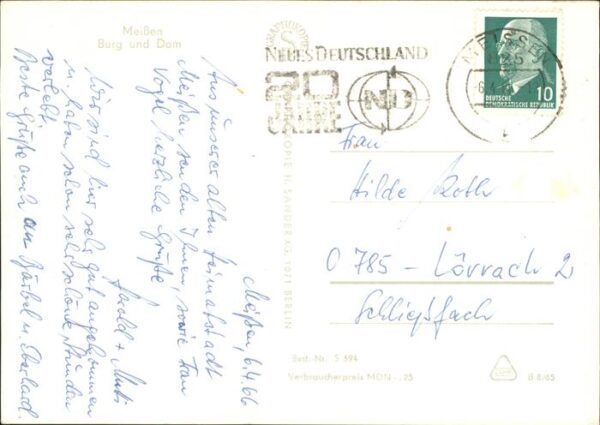 Meißen
Burg und Dom
Meißen, 6.4.66
Aus unserer alten Heimatstadt
Meißen senden Ihnen, sowie Frau
Vogel herzliche Grüße
+ Muti
Wir sind hier sehr gut angekommen
u. haben schon sehr schöne Stunden
verlebt.
Beste Grüße auch an Bärbel u. Eberhard.
NEUES DEUTSCHLAND
20
JAHRE
ND
MEISSEN
DEUTSCHE
DEMOKRATISCHE REPUBLIK
10
Frau
Hilde Roth
O 785 - Lörrach 2
Schließfach
H. SANDER KG, 1071 BERLIN
Best.-Nr. S 594
Verbraucherpreis MDN -,25
B 8/65